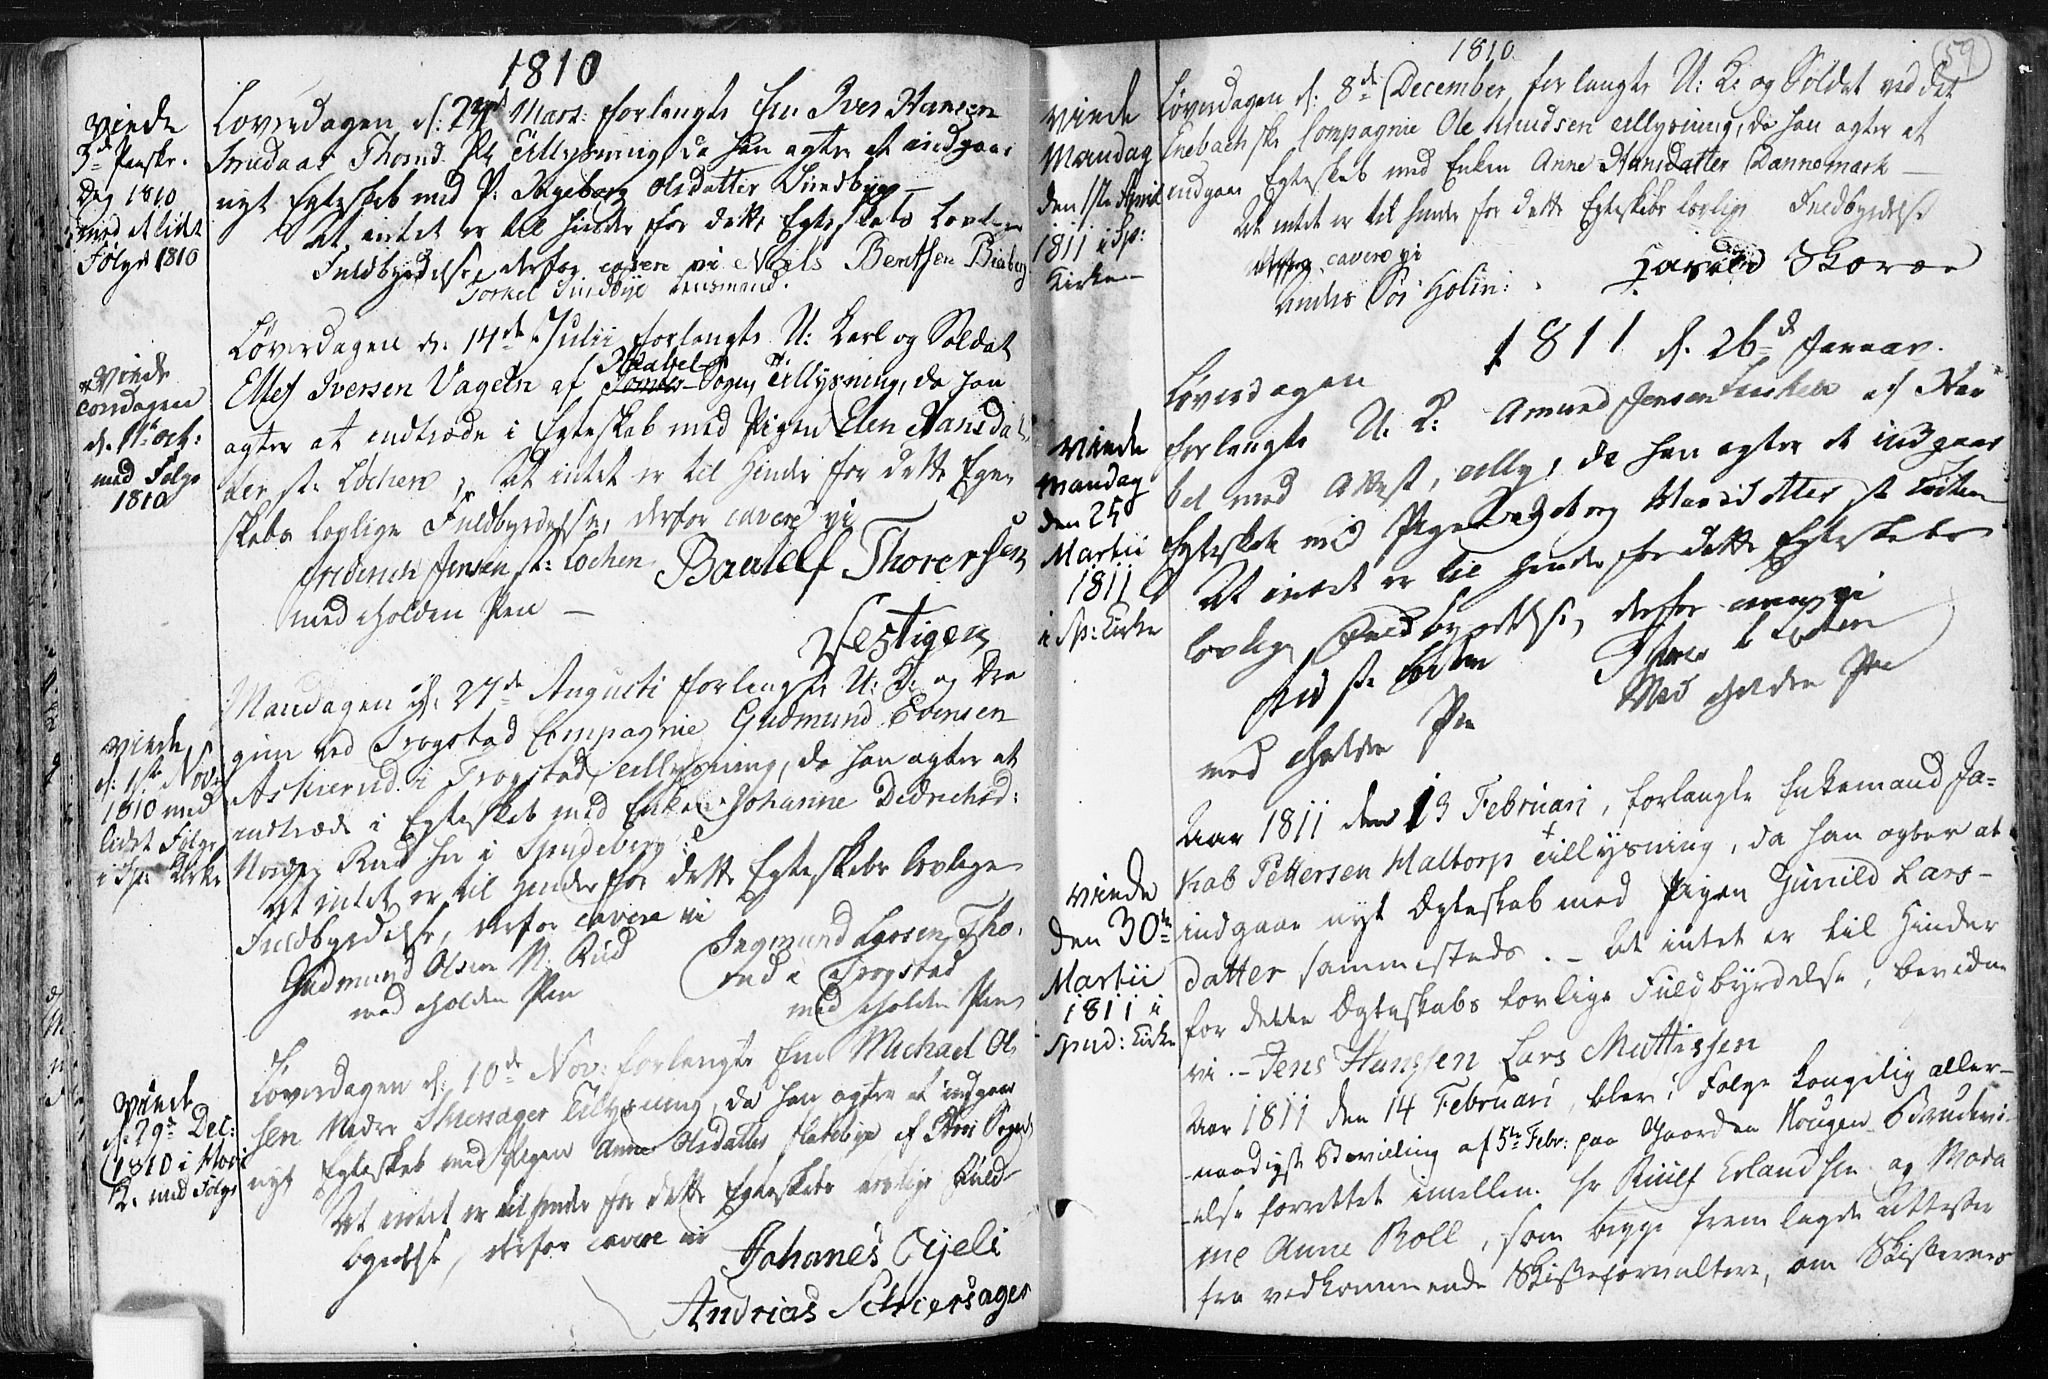 1810
Vinde
3de Paaske-
Dag 1810
med et lidet
Følge 1810
Løverdagen d: 24de Mart: forlangte Em Iver Hansen
Thomd. Pl Tillysning, da han agter at indgaae
nyt Egteskab med P: Ingeborg Olsdatter Sundbye —
At intet er til Hinder for dette Egteskabs Lovlige
Fuldbyrdelse, derfor cavere vi Niels Berntsen
Torkel Sundbye Lensmand.
Vinde
Torsdagen
d. 11te Oct:
med Følge
1810
Løverdagen d. 14de Julii forlangte U: Karl og Soldat
Ellef Iversen Vageln af Sogn, Tillysning, da han
agter at indtræde i Egteskab med Pigen Elen Hansdat-
ter st: Lochen, At intet er til Hinder for dette Egte-
skabs lovlige Fuldbyrdelse, derfor cavere vi
Friderich Jensen st: Lochen Baulelf Thorersen
med holden Pen —
Vestigen
Vinde
d: 1ste Nov:
1810 med
lidet Følge
i Sp: Kirke
Mandagen d: 27de Augusti forlangte U: K: og Dra
gun ved Trogstad Compagnie Gudmund Evensen
Askierud i Trogstad, Tillysning, da han agter at
indtræde i Egteskab med Enken Johanne Didrichsd:
Nordre Rud her i Spydeberg:
At intet er til Hinder for dette Egteskabs lovlige
Fuldbyrdelse, derfor cavere vi
Gudmund Olsen N: Rud
med holden Pen
Ingmund Tho-
rud i Trogstad
med holden Pen
Vinde
d: 29de Dec:
1810 i Hovi
K. med Følge
Løverdagen d: 10de Nov: forlangte Em Michael Ol-
sen Nedre Skiersager Tillysning, da han agter at indgaae
nyt Egteskab med Pigen Anne Olsdatter Slatebye af Hovi Sogn
At intet er til Hinder for dette Egteskabs lovlige Fuld-
byrdelse, derfor cavere vi
Johanes Gjeli
Andrias Schiersager
59
1810.
Vinde
Mandag
den 1ste April
1811 i Sp:
Kirke—
Løverdagen d: 8de December, forlangte U: K: og Soldat ved det
Enebachske Compagnie Ole Knudsen Tillysning, da han agter at
indgaae Egteskab med Enken Anne Hansdatter Dannemark —
At intet er til Hinder for dette Egteskabs lovlige Fuldbyrdelse
derfor cavere vi
Anders Holin: Skaaren
1811 d. 26de Januar.
Vinde
Mandag
den 25
Martii
1811
i Sp: Kirke
Løverdagen
forlangte U. K: Amund Jensen af Haa
bøl med Attest, Tilly, da han agter at indgaae
Egteskab med Pigen Ingeborg Hansdatter st Lochen
At intet er til Hinder for dette Egteskabs
lovlige Fuldbyrdelse, derfor cavere vi
st: Lochen Lochen
med holden Pen Med holden Pen
Vinde
den 30te
Martii
1811 i
Spud: Kirke
Aar 1811 den 13 Februari, forlangte Enkemand Ja-
kob Pettersen Maltorp Tillysning, da han agter at
indgaae nyt Ægteskab med Pigen Gunild Lars-
datter sammesteds. — At intet er til Hinder
for dette Ægteskabs lovlige Fuldbyrdelse, bevidne
vi. — Jens Hanssen Lars Mattissen
Aar 1811 den 14 Februari, blev i Følge Kongelig aller-
naadigst Bevilling af 5te Febr: paa Gaarden Hougen Brudevi-
else forrettet imellem Hr Ruulf Erlandsen og Mada
me Anne Roll, som begge fremlagde Attester
fra vedkommende Skifteforvaltere, om Skifternes